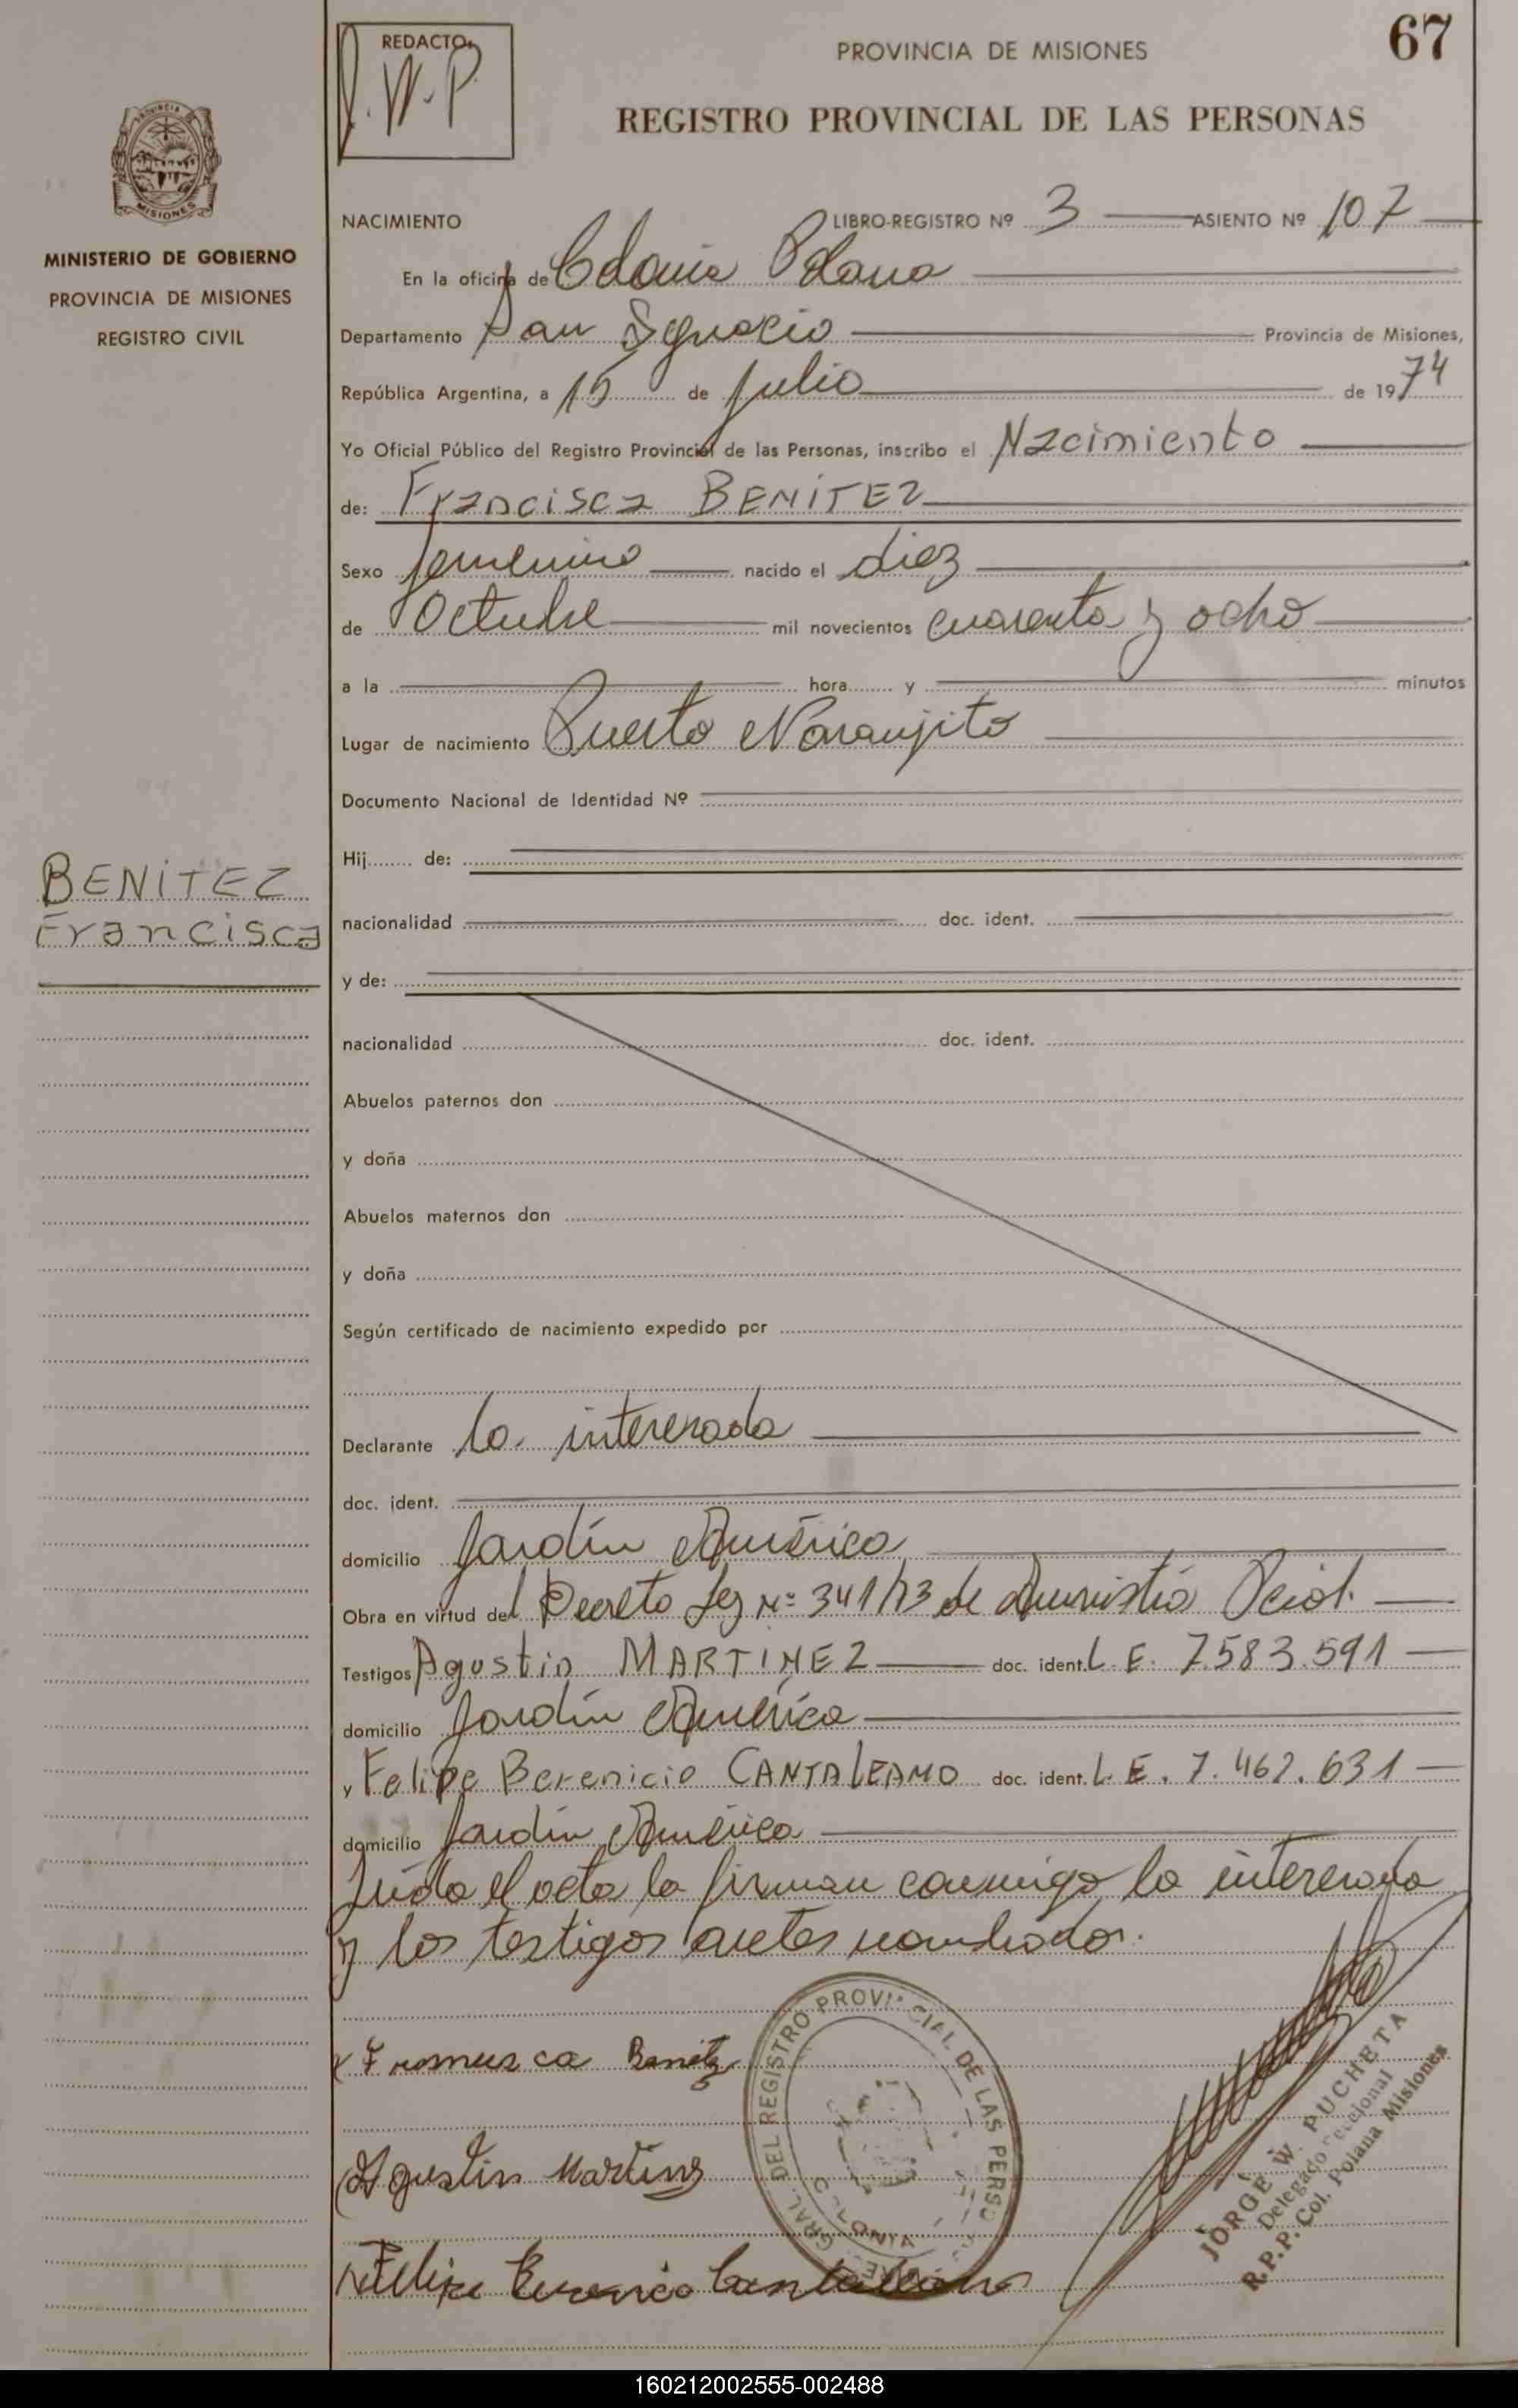 67
REDACTO
J.W.P.
PROVINCIA DE MISIONES
REGISTRO PROVINCIAL DE LAS PERSONAS
PROVINCIA
MISIONES
MINISTERIO DE GOBIERNO
PROVINCIA DE MISIONES
REGISTRO CIVIL
BENITEZ
Francisca
NACIMIENTO LIBRO-REGISTRO Nº 3 ASIENTO Nº 107
En la oficina de Colonia Polana
Departamento San Ignacio Provincia de Misiones,
República Argentina, a 15 de julio de 1974
Yo Oficial Público del Registro Provincial de las Personas, inscribo el Nacimiento
de: Francisca BENITEZ
Sexo femenino nacido el diez
de Octubre mil novecientos cuarenta y ocho
a la hora y minutos
Lugar de nacimiento Puerto Naranjito
Documento Nacional de Identidad Nº
Hij de:
nacionalidad doc. ident.
y de:
nacionalidad doc. ident.
Abuelos paternos don
y doña
Abuelos maternos don
y doña
Según certificado de nacimiento expedido por
Declarante la interesada
doc. ident.
domicilio Jardín América
Obra en virtud del Decreto Ley Nº 341/73 de Amnistía
Testigos Agustin MARTINEZ doc. ident. L.E. 7.583.591
domicilio Jardín América
y Felipe Berenicio CANTALEANO doc. ident. L.E. 7.462.631
domicilio Jardín América
Leída el acta la firman conmigo la interesada
y los testigos antes nombrados.
Benitez
Agustin Martinez
Felipe
GRAL. DEL REGISTRO PROVINCIAL DE LAS PERSO
COLONIA
JORGE W. PUCHETA
Delegado Seccional
R.P.P. Col. Polana Misiones
160212002555-002488